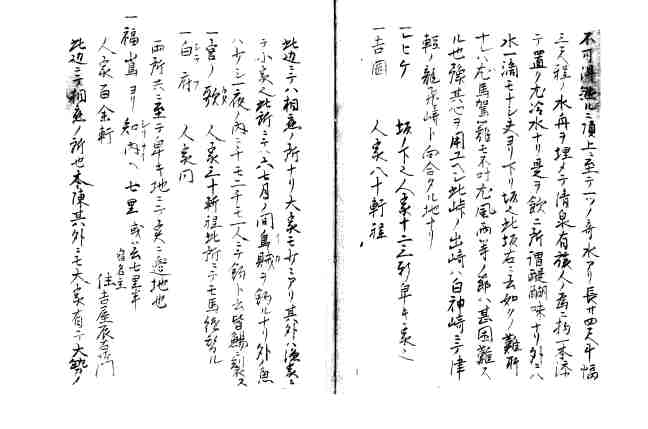 不可得然ルニ頂上ニ至テ一ツノ奇水アリ長サ四尺斗幅
三尺程ノ水舟ヲ埋メテ清泉有旅人ノ為ニ杓一本添
テ置ク尤冷水ナリ是ヲ飲ニ所謂醍醐味ナリ外ニハ
水一滴モナシ夫ヨリ下リ坂也此坂右ニ云如クノ難所
ナレハ尤馬駕籠モ不叶尤風雨等ノ節ハ甚困難ス
ル也強其心ヲ用ユヘシ此峠ノ出崎ハ白神崎ニテ津
軽ノ龍飛崎ト向合タル地ナリ
一ヒヒケ 坂ノ下也人家十二三軒卑キ家也
一吉岡 人家八十軒程
此辺ニテハ相応ノ所ナリ大家モ少ミアリ其外ハ漁家ニ
テ小家也此所ニテハ六七月ノ間烏賊ヲ釣ルナリ外ノ魚
ハ少シ一夜ノ内ニ千モ二千モ一人ニテ釣ト云皆鯣ニ製ス
一宮ノ歌 人家三十軒程此所ニテモ馬継替ル
一白府 人家同
両所共ニ至テ卑キ地ニテ実ニ辺地也
一福嶌ヨリ知内ヘ七里 或ハ云七里半
人家百余軒 宿名主 住吉屋辰右衛門
此辺ニテ相応ノ所也本陳其外ニモ大家有テ大勢ノ